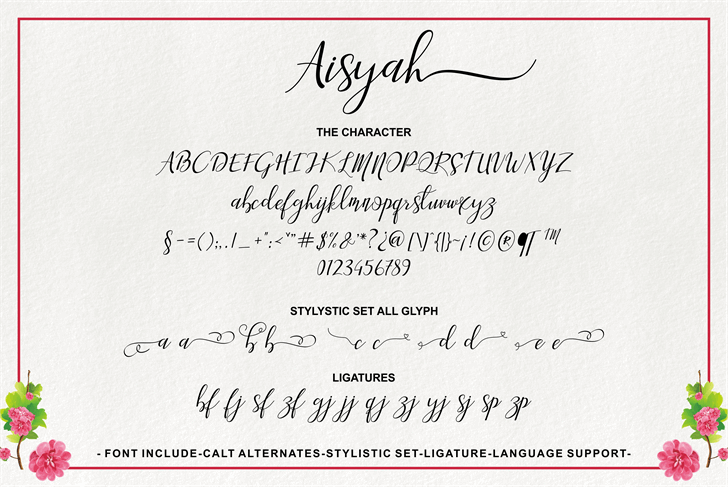 Aisyah
THE CHARACTER
ABCDEFGHIJKLMNOPQRSTUVWXYZ
abcdefghijklmnopqrstuvwxyz
§-=();,./_+":<"”#$%&'*?¿@[\]^{|}~¡!©®¶™
0123456789
STYLYSTIC SET ALL GLYPH
a a b b c c d d e e
LIGATURES
bf fj sf zf gj jj qj zj yj sj sp zp
- FONT INCLUDE-CALT ALTERNATES-STYLISTIC SET-LIGATURE-LANGUAGE SUPPORT-